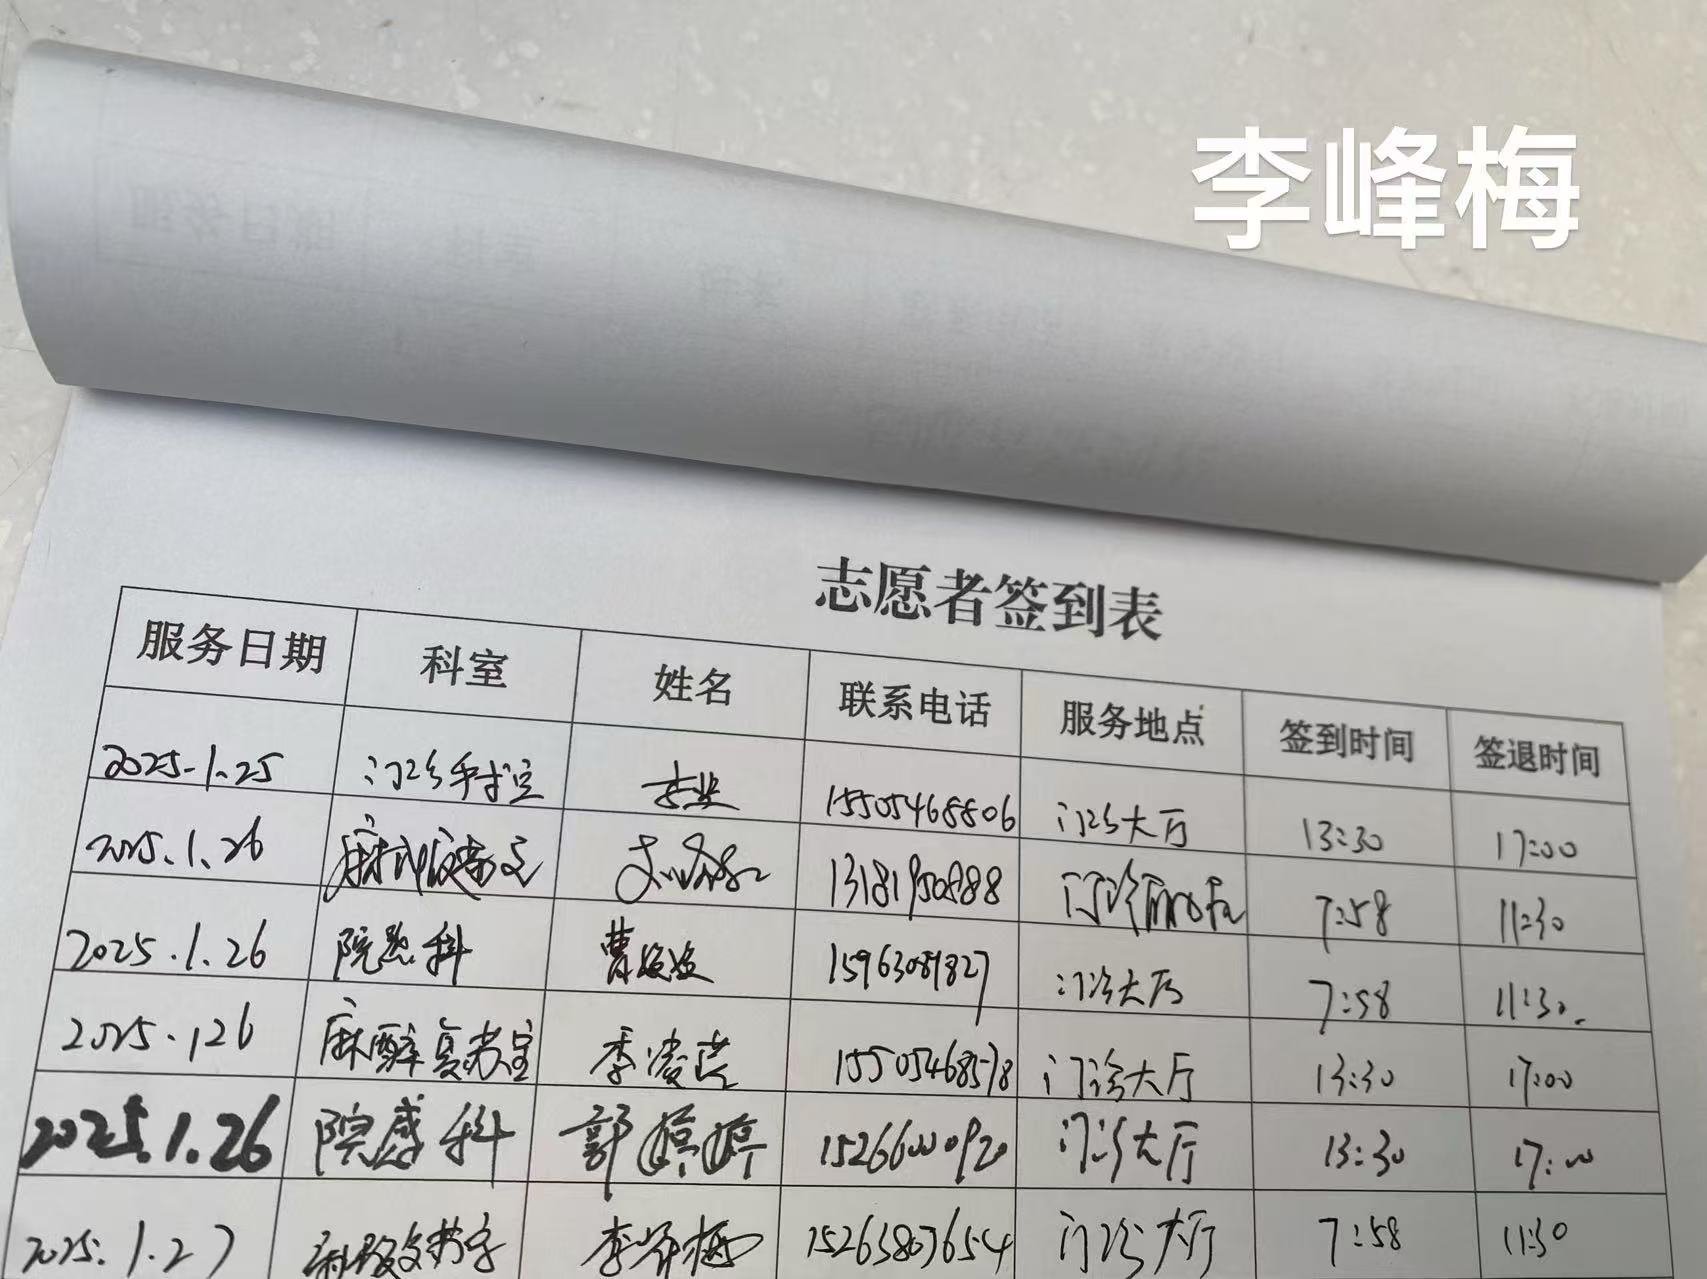 李峰梅
志愿者签到表
服务日期 科室 姓名 联系电话 服务地点 签到时间 签退时间
2025.1.25 门诊手术室 15505468806 门诊大厅 13:30 17:00
2025.1.26 13181950888 7:58 11:30
2025.1.26 院感科 曹姣姣 15963089827 门诊大厅 7:58 11:30.
2025.126 麻醉复苏室 李凌芸 15505468578 门诊大厅 13:30 17:00
2025.1.26 院感科 郭婷婷 15266000920 门诊大厅 13:30 17:00
2025.1.27 李峰梅 15263807654 门诊大厅 7:58 11:30